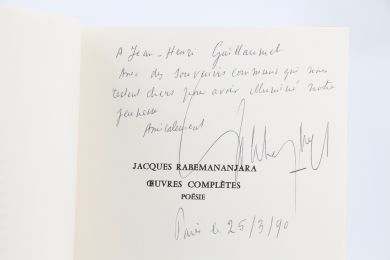 A Jean-Henri Guillaumet
Avec des souvenirs communs qui nous
restent chers pour avoir illuminé notre
jeunesse.
Amicalement
JACQUES RABEMANANJARA
ŒUVRES COMPLÈTES
POÉSIE
Paris le 25/3/90